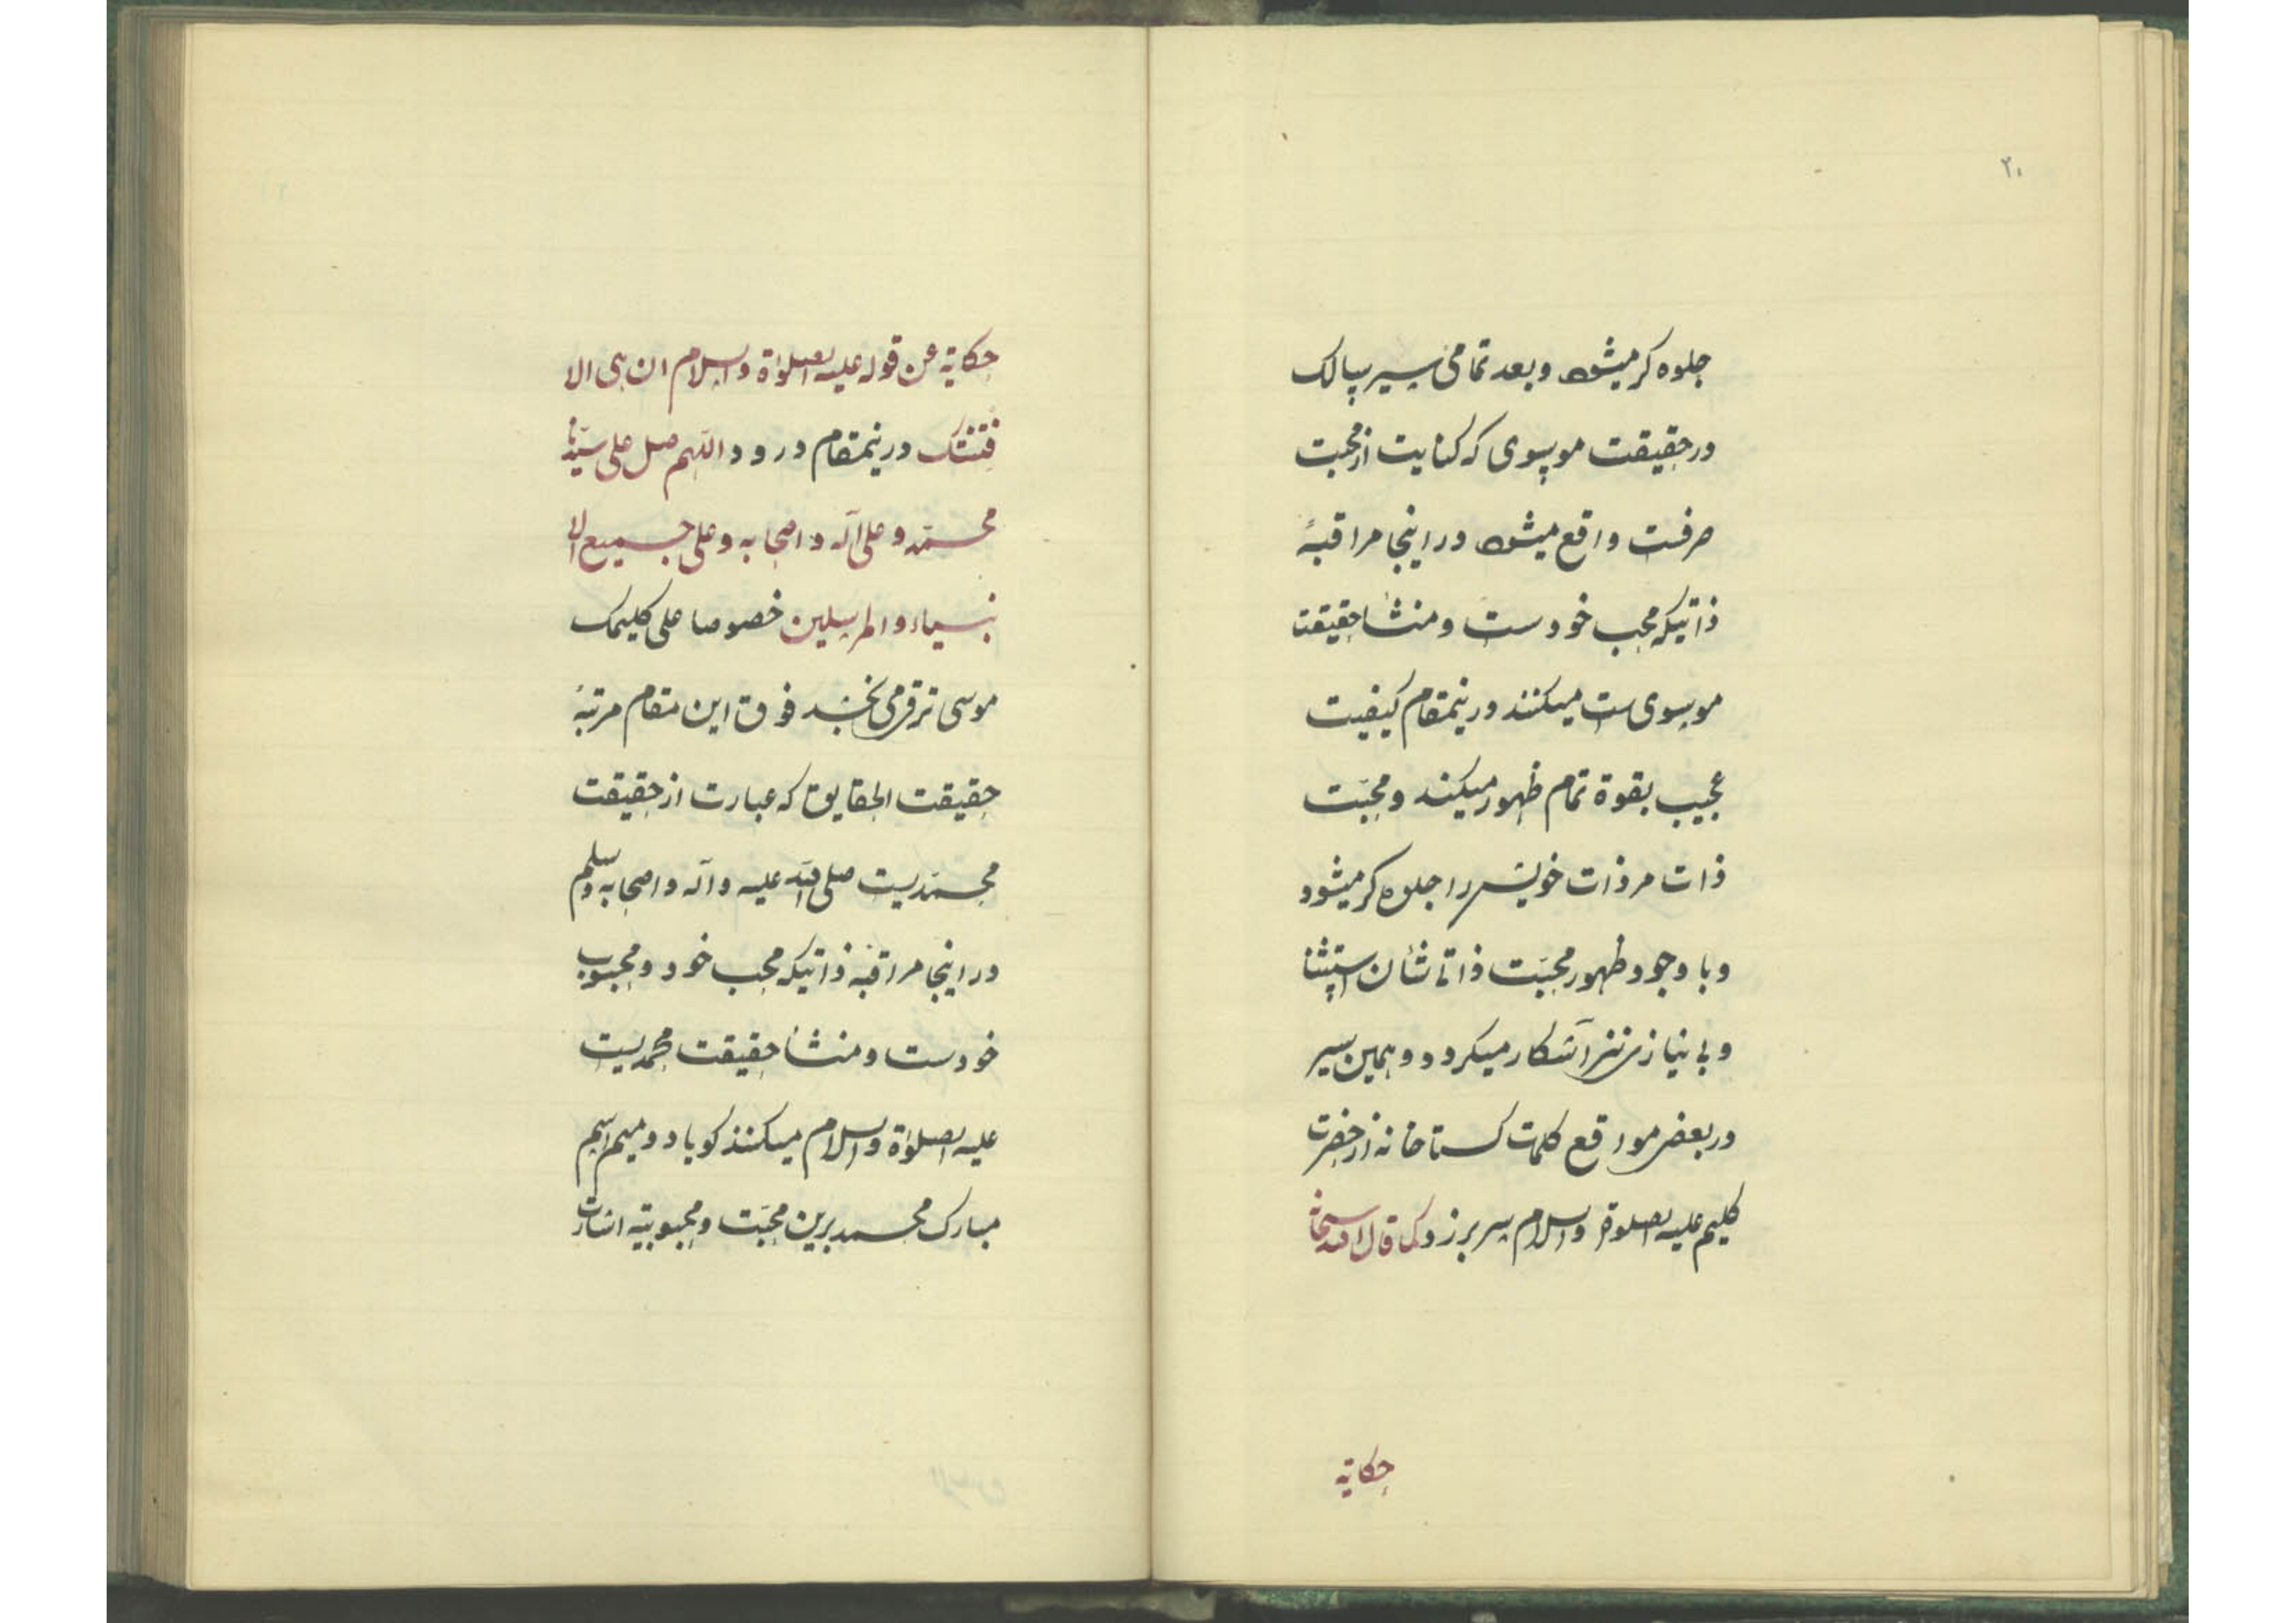 ۲۰
جلوه کر میشود وبعد تمامی سیر سالک
در حقیقت موسوی که کنایت از محبت
صرفست واقع میشود در اینجا مراقبهٔ
ذاتیکه محب خودست ومنشا حقیقت
موسوی ست میکنند درینمقام کیفیت
عجیب بقوة تمام ظهور میکند ومحبّت
ذات مر ذات خویش را جلوه کر میشود
وبا وجود ظهور محبّت ذاتی شأن استغنا
وبی نیازی نیز آشکار میکردد وهمین سیر
در بعض مواقع کلمات کستاخانه از حضرت
کلیم علیه الصلوة والسلام سر بر زد کما قال الله سبحانه
حکایة
حکایة عن قوله علیه الصلوٰة والسلام ان هی الا
فتنتک درینمقام درود اللّهم صل علی سیّدنا
محمّد وعلی آله واصحابه وعلی جمیع الا
نبیاء والمرسلین خصوصا علی کلیمک
موسی ترقی می بخشد فوق این مقام مرتبهٔ
حقیقت الحقایق که عبارت از حقیقت
محمّدیست صلی الله علیه وآله واصحابه وسلم
در اینجا مراقبهٔ ذاتیکه محب خود ومحبوب
خودست ومنشأ حقیقت محمدیست
علیه الصلوٰة والسلام میکنند کویا دو میم اسم
مبارک محمد برین محبّت ومحبوبیته اشارت